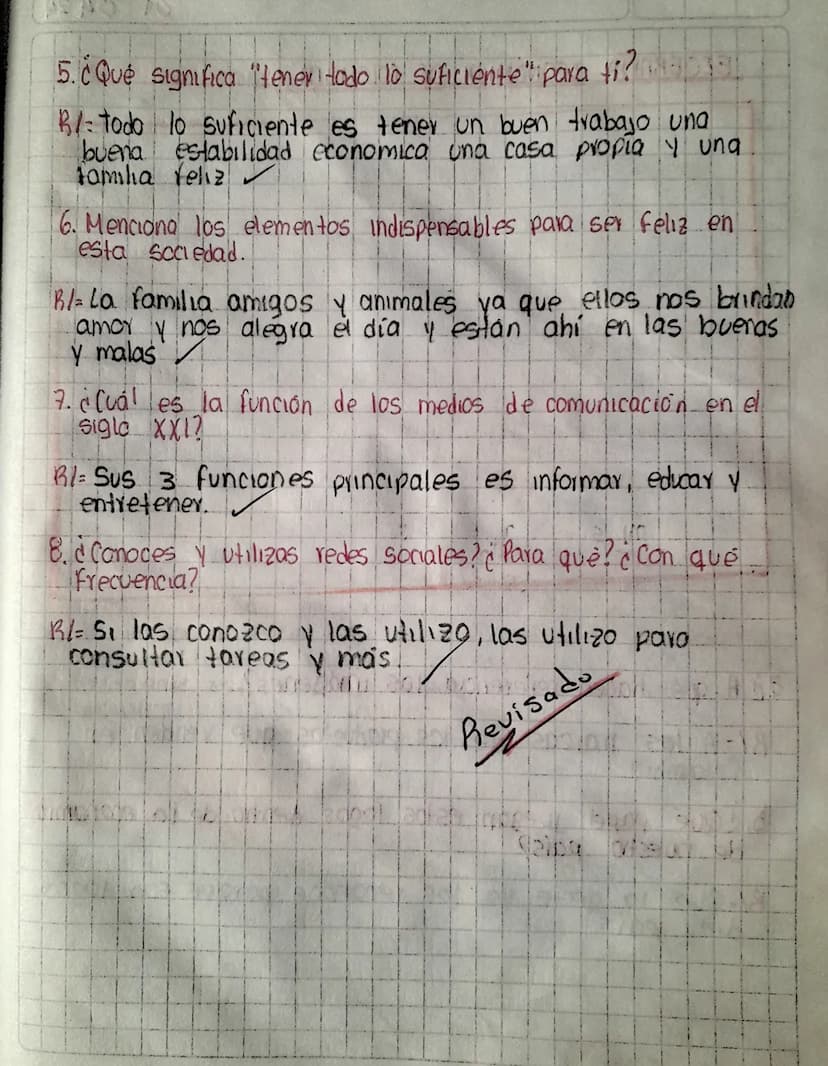 5. ¿Qué significa "tener todo lo suficiente" para ti?
R/= todo lo suficiente es tener un buen trabajo una
buena estabilidad economica una casa propia y una
familia feliz
6. Menciona los elementos indispensables para ser feliz en
esta sociedad.
R/= La familia amigos y animales ya que ellos nos brindan
amor y nos alegra el día y están ahí en las buenas
y malas
7. ¿Cuál es la función de los medios de comunicación en el
siglo XXI?
R/= Sus 3 funciones principales es informar, educar y
entretener.
8. ¿Conoces y utilizas redes sociales? ¿Para qué? ¿Con qué
frecuencia?
R/= Si las conozco y las utilizo, las utilizo para
consultar tareas y más.
Revisado